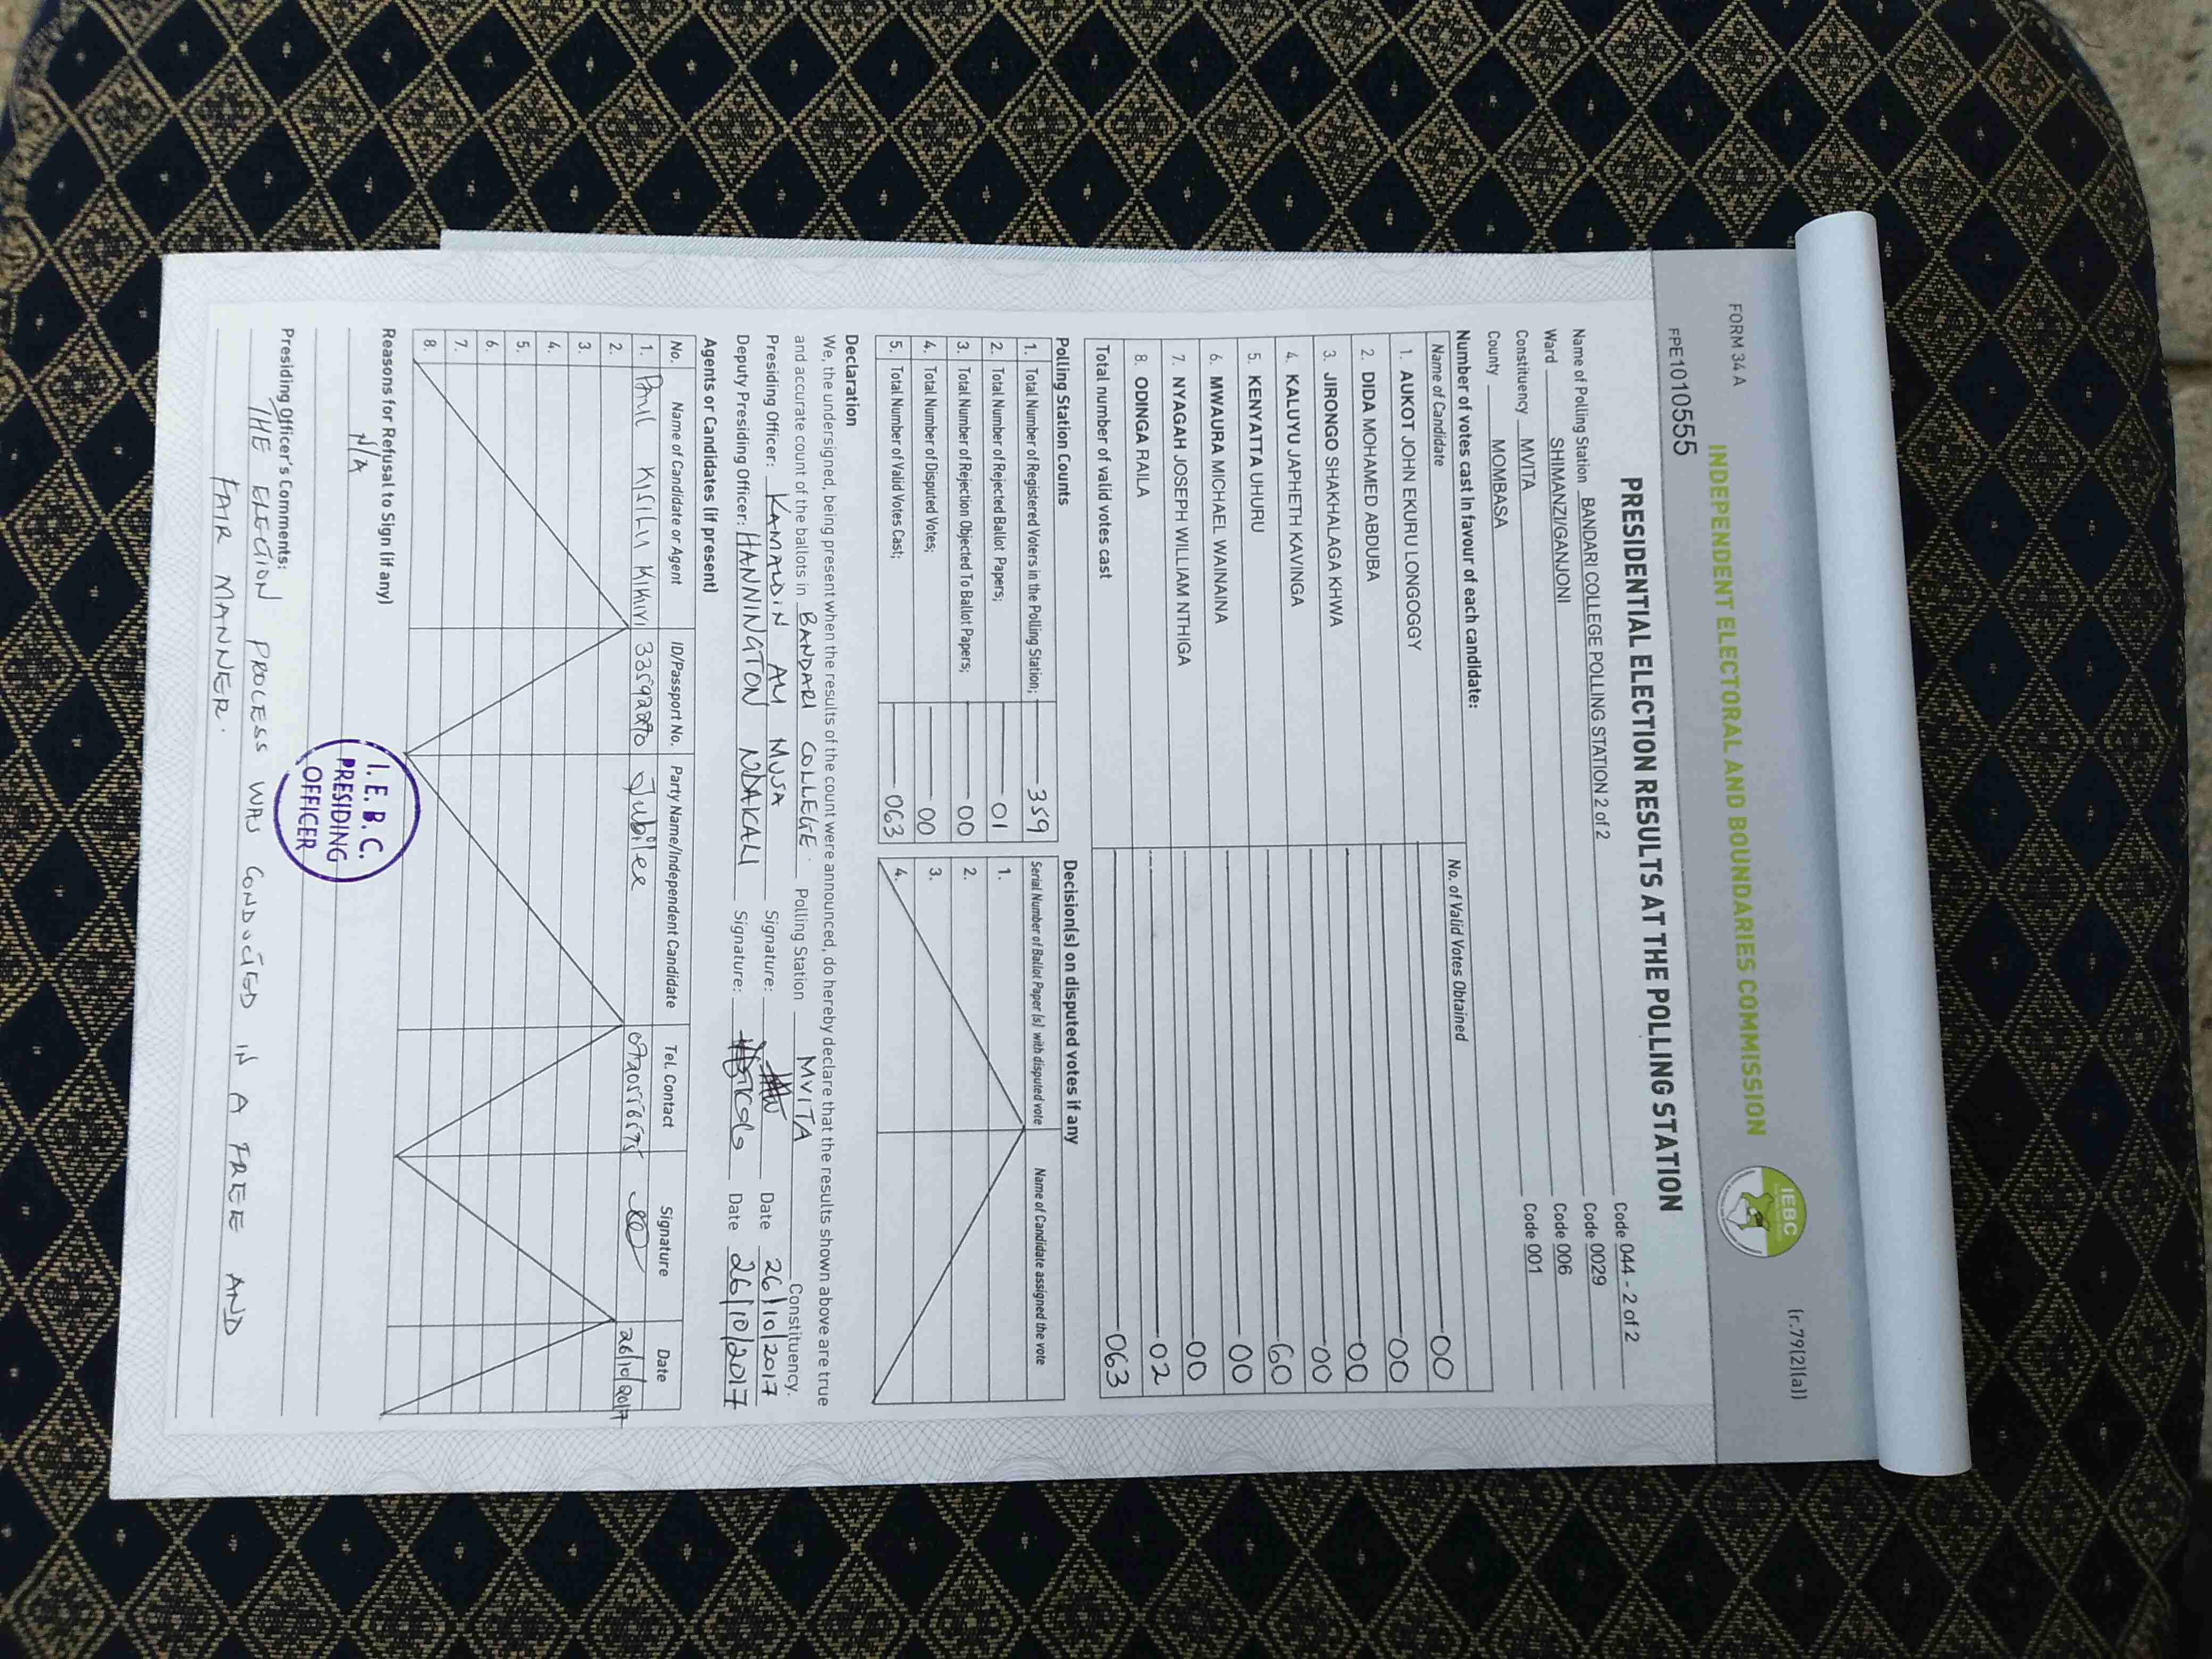 FORM 34 A
(r.79(2)(a))
INDEPENDENT ELECTORAL AND BOUNDARIES COMMISSION
IEBC
FPE1010555
PRESIDENTIAL ELECTION RESULTS AT THE POLLING STATION
Name of Polling Station BANDARI COLLEGE POLLING STATION 2 of 2 Code 044 - 2 of 2
Ward SHIMANZI/GANJONI Code 0029
Constituency MVITA Code 006
County MOMBASA Code 001
Number of votes cast in favour of each candidate:
Name of Candidate No. of Valid Votes Obtained
1. AUKOT JOHN EKURU LONGOGGY 00
2. DIDA MOHAMED ABDUBA 00
3. JIRONGO SHAKHALAGA KHWA 00
4. KALUYU JAPHETH KAVINGA 00
5. KENYATTA UHURU 60
6. MWAURA MICHAEL WAINAINA 00
7. NYAGAH JOSEPH WILLIAM NTHIGA 00
8. ODINGA RAILA 02
Total number of valid votes cast 063
Polling Station Counts
1. Total Number of Registered Voters in the Polling Station; 359
2. Total Number of Rejected Ballot Papers; 01
3. Total Number of Rejection Objected To Ballot Papers; 00
4. Total Number of Disputed Votes; 00
5. Total Number of Valid Votes Cast; 063
Decision(s) on disputed votes if any
Serial Number of Ballot Paper (s) with disputed vote Name of Candidate assigned the vote
1.
2.
3.
4.
Declaration
We, the undersigned, being present when the results of the count were announced, do hereby declare that the results shown above are true
and accurate count of the ballots in BANDARI COLLEGE. Polling Station MVITA Constituency.
Presiding Officer: KAMALDIN ALI MUSA Signature: Date 26/10/2017
Deputy Presiding Officer: HANNINGTON NDAKALI Signature: Date 26/10/2017
Agents or Candidates (if present)
No. Name of Candidate or Agent ID/Passport No. Party Name/Independent Candidate Tel. Contact Signature Date
1. PAUL KISILU KIKUVI 33592270 Jubilee 26/10/2017
2.
3.
4.
5.
6.
7.
8.
Reasons for Refusal to Sign (if any)
N/A
I.E.B.C.
PRESIDING
OFFICER
Presiding Officer's Comments:
THE ELECTION PROCESS WAS CONDUCTED IN A FREE AND
FAIR MANNER.